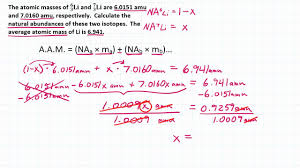 The atomic masses of ⁶₃Li and ⁷₃Li are 6.0151 amu
and 7.0160 amu, respectively. Calculate the
natural abundances of these two isotopes. The
average atomic mass of Li is 6.941.
NA⁶Li = 1 - x
NA⁷Li = x
A.A.M. = (NAₐ × mₐ) ± (NA_b × m_b) ...
(1-x)·6.0151amu + x·7.0160amu = 6.941amu
6.0151amu - 6.0151amu x + 7.0160amu x = 6.941amu
-6.0151amu -6.0151amu
1.0009 x amu = 0.9259 amu
1.0009 amu 1.0009 amu
x =